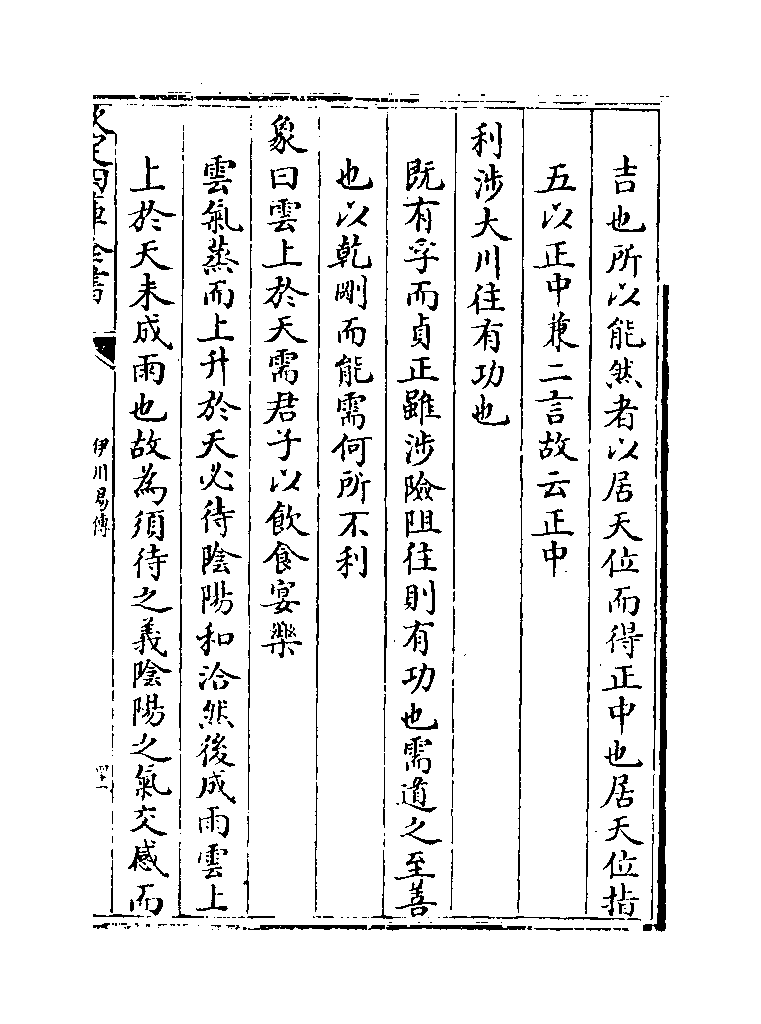 吉也所以能然者以居天位而得正中也居天位指
五以正中兼二言故云正中
利涉大川往有功也
既有孚而貞正雖涉險阻往則有功也需道之至善
也以乾剛而能需何所不利
象曰雲上於天需君子以飲食宴樂
雲氣蒸而上升於天必待陰陽和洽然後成雨雲上
上於天未成雨也故為須待之義陰陽之氣交感而
欽定四庫全書
伊川易傳
四十一